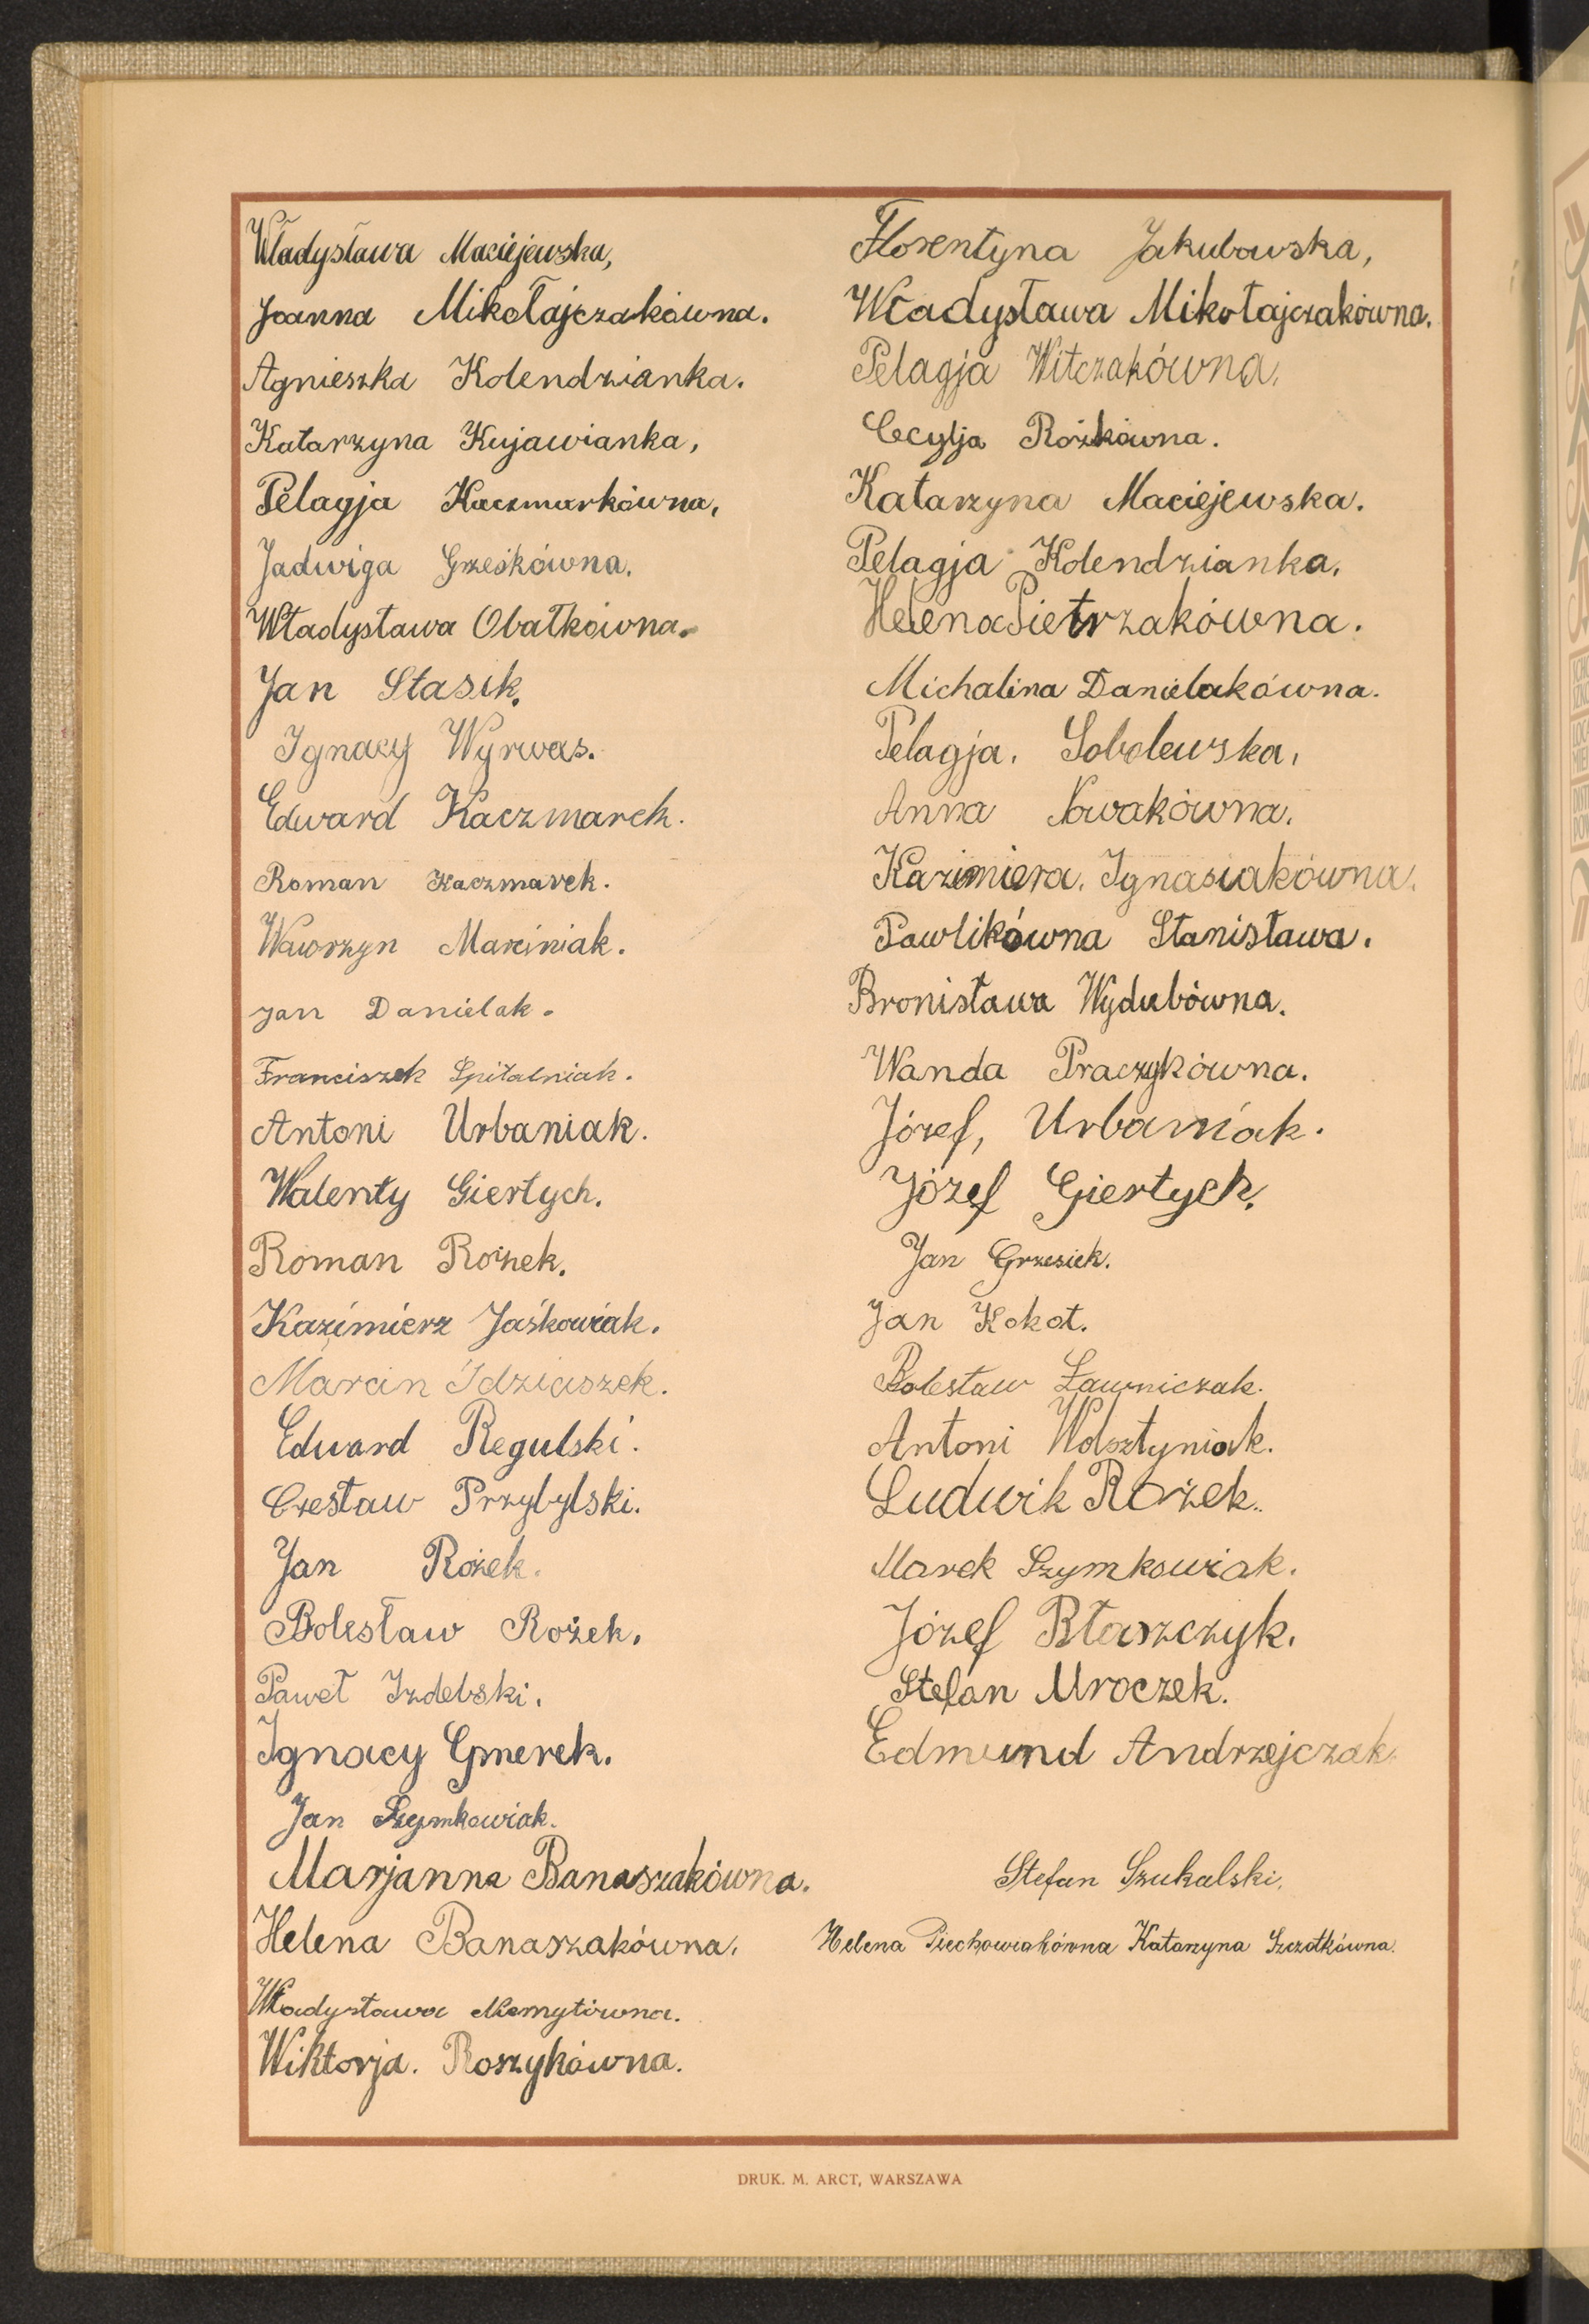 Władysława Maciejewska,
Joanna Mikołajczakówna.
Agnieszka Kolendzianka.
Katarzyna Kujawianka,
Pelagja Kaczmarkówna,
Jadwiga Grześkówna.
Władysława Obałkówna.
Jan Stasik.
Ignacy Wyrwas.
Edward Kaczmarek.
Roman Kaczmarek.
Wawrzyn Marciniak.
Jan Danielak.
Franciszek Spitalniak.
Antoni Urbaniak.
Walenty Giertych.
Roman Rożek.
Kazimierz Jaśkowiak.
Marcin Idziaszek.
Edward Regulski.
Czesław Przybylski.
Jan Rożek.
Bolesław Rożek.
Paweł Izdebski.
Ignacy Gmerek.
Jan Szymkowiak.
Marjanna Banaszakówna.
Helena Banaszakówna.
Władysława Niemytówna.
Wiktorja. Roszykówna.
Florentyna Jakubowska,
Władysława Mikołajczakówna.
Pelagja Witczakówna.
Cecylja Rożkówna.
Katarzyna Maciejewska.
Pelagja Kolendzianka.
Helena Pietrzakówna.
Michalina Danielakówna.
Pelagja. Sobolewska.
Anna Nowakówna.
Kazimiera. Ignasiakówna.
Pawlikówna Stanisława.
Bronisława Wydubówna.
Wanda Praczykówna.
Józef, Urbaniak.
Józef Giertych.
Jan Grzesiek.
Jan Kokot.
Bolesław Ławniczak.
Antoni Wolsztyniak.
Ludwik Rożek.
Marek Szymkowiak.
Józef Błaszczyk.
Stefan Mroczek.
Edmund Andrzejczak.
Stefan Szukalski.
Helena Piechowiakówna Katarzyna Szczotkówna.
DRUK. M. ARCT, WARSZAWA